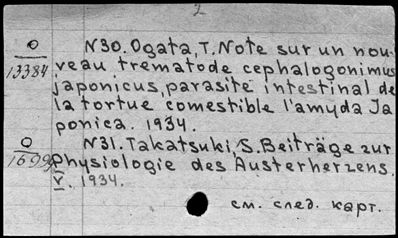 2
O
13384
N30. Ogata, T. Note sur un nou-
veau trematode cephalogonimus
japonicus, parasite intestinal de
la tortue comestible l'amyda Ja
ponica. 1934.
O
16999
N31. Takatsuki, S. Beiträge zur
physiologie des Austerherzens.
V. 1934.
см. след. карт.